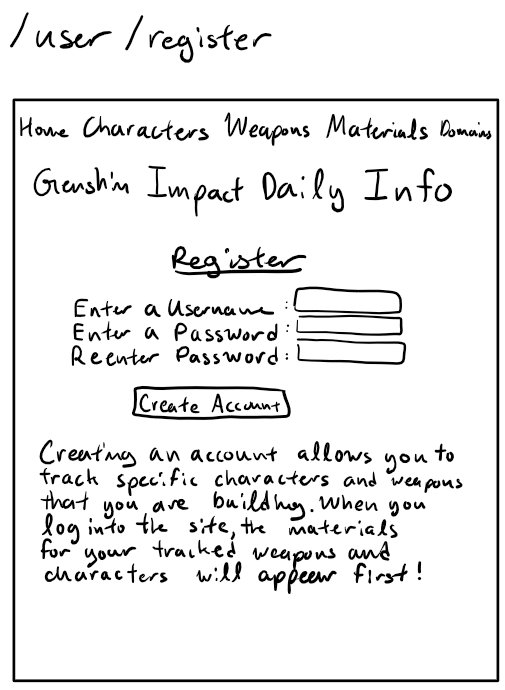 /user/register
Home Characters Weapons Materials Domains
Genshin Impact Daily Info
Register
Enter a Username :
Enter a Password :
Reenter Password :
Create Account
Creating an account allows you to
track specific characters and weapons
that you are building. When you
log into the site, the materials
for your tracked weapons and
characters will appear first!